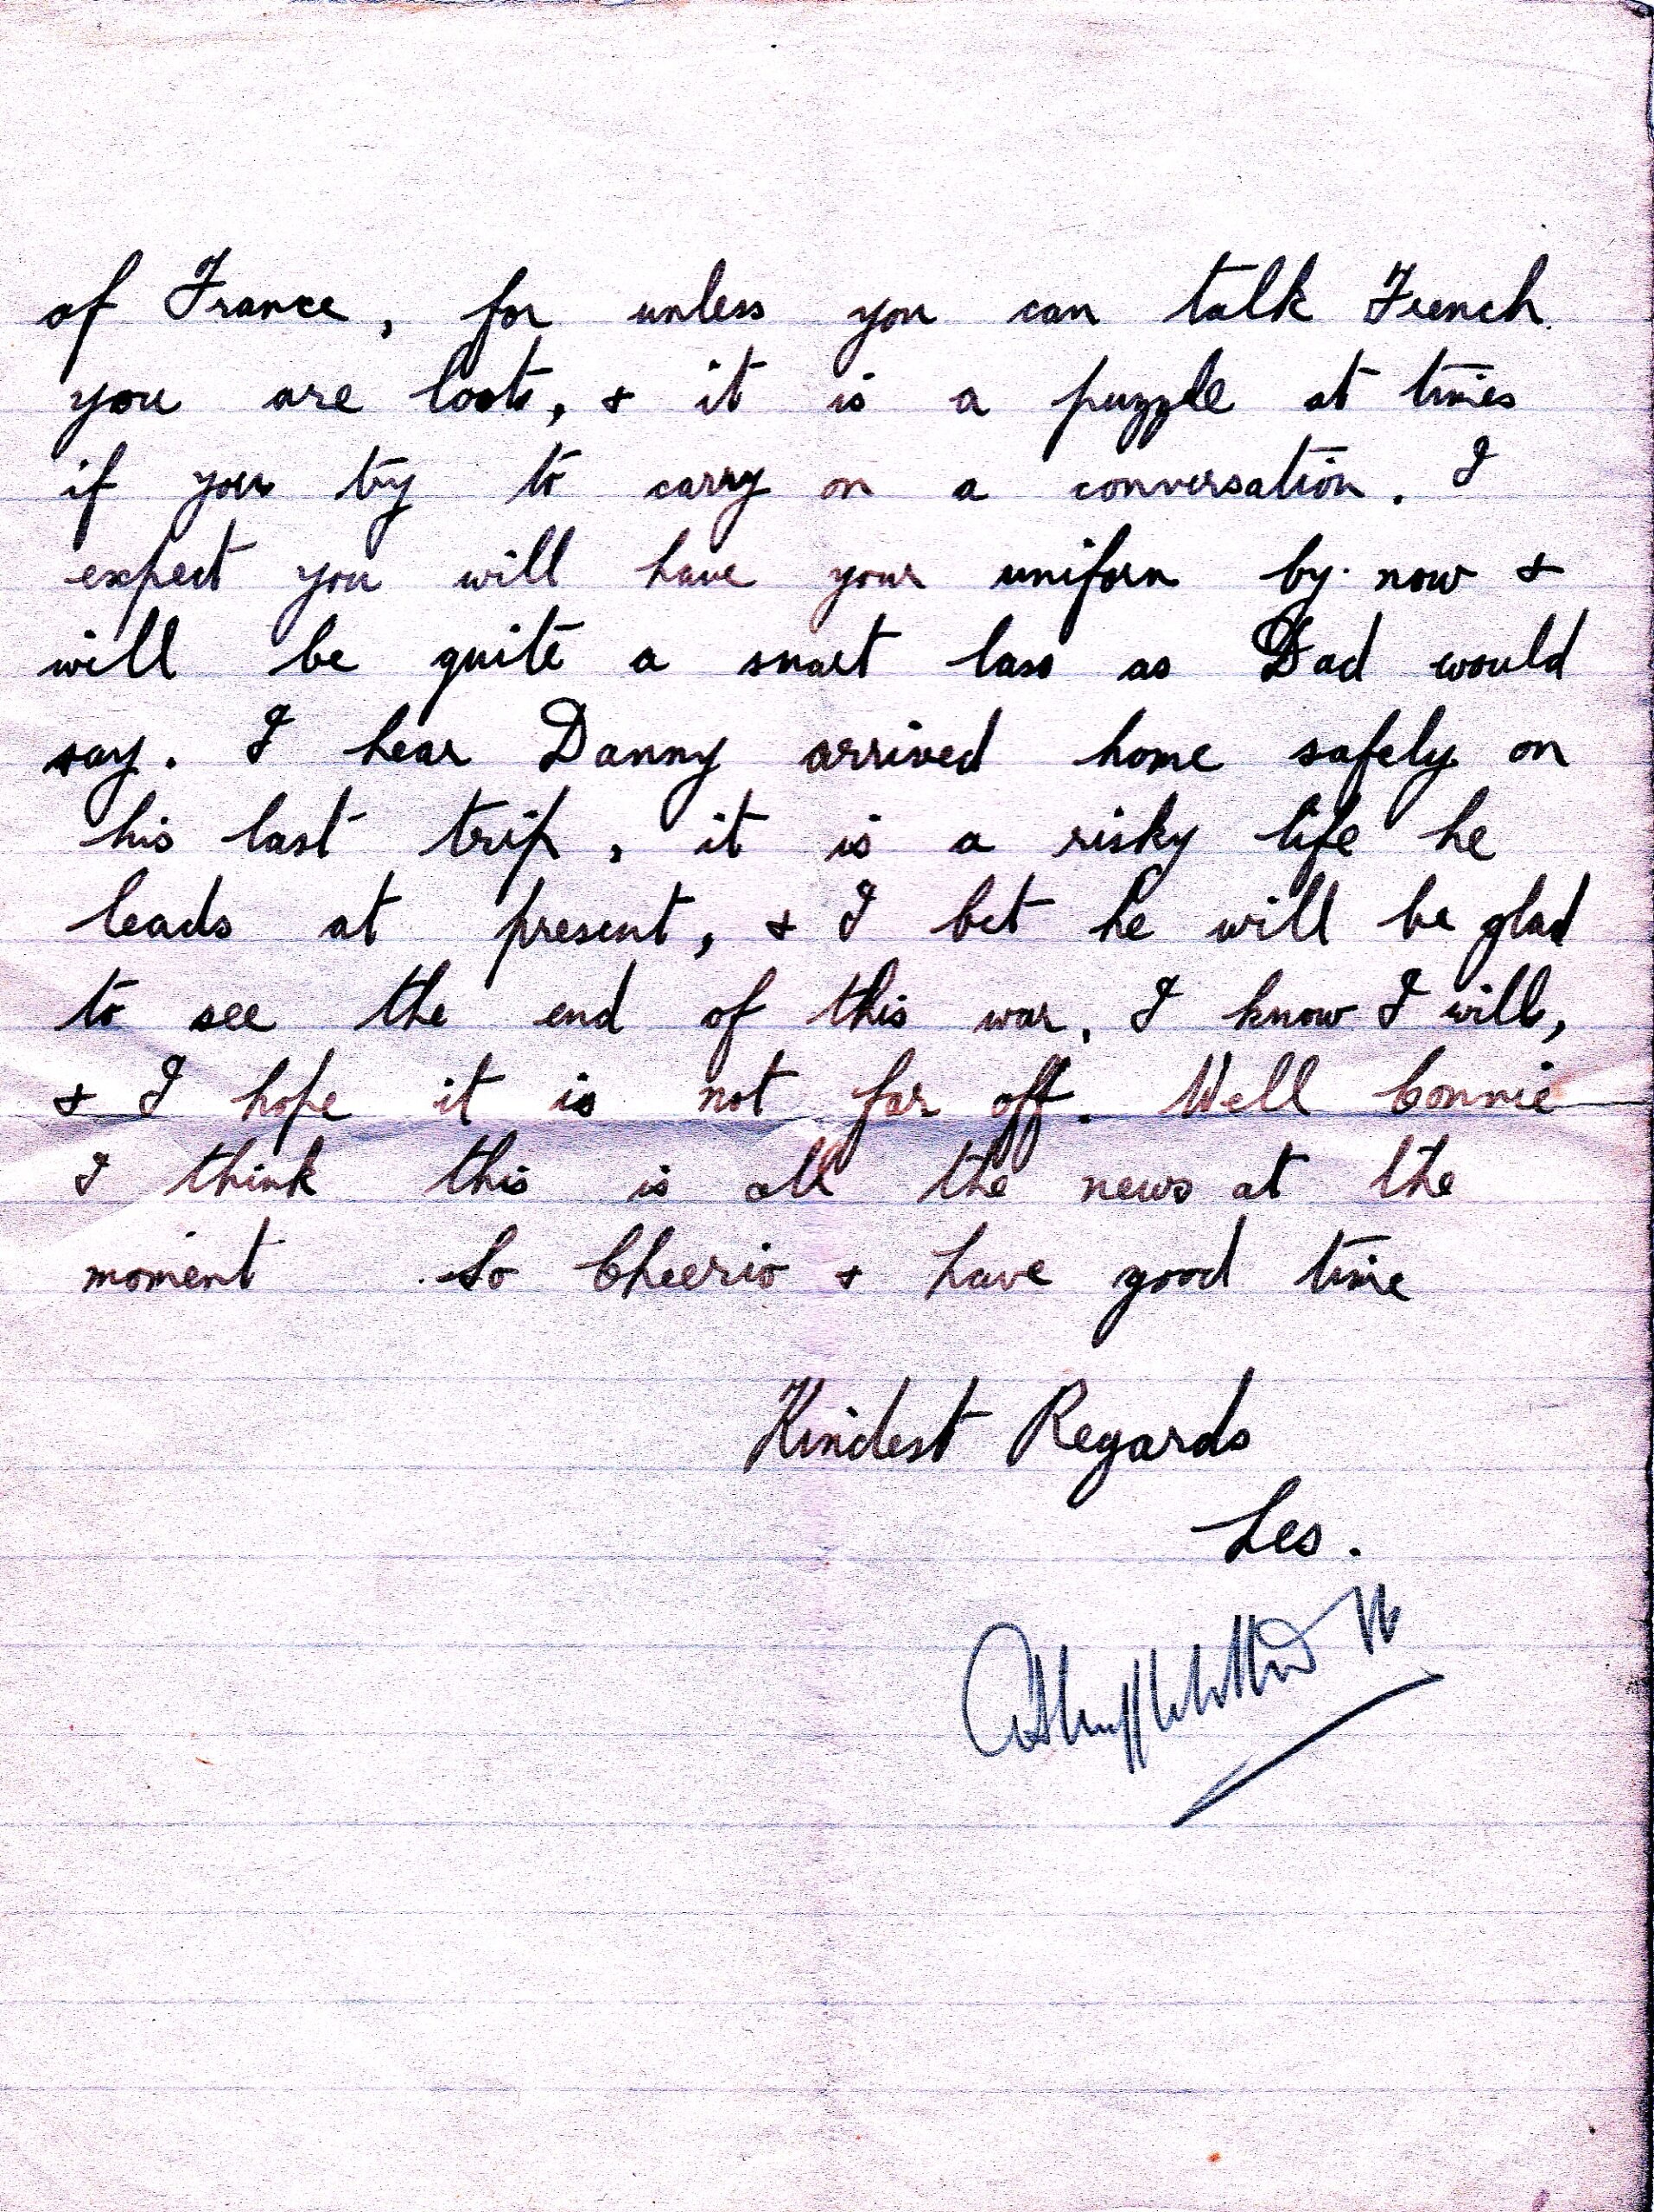 of France, for unless you can talk French
you are loste, & it is a puzzle at times
if you try to carry on a conversation. I
expect you will have your uniform by now &
will be quite a smart lass as Dad would
say. I hear Danny arrived home safely on
his last trip, it is a risky life he
leads at present, & I bet he will be glad
to see the end of this war, I know I will,
& I hope it is not far off. Well Connie
I think this is all the news at the
moment So Cheerio & have good time
Kindest Regards
Les.